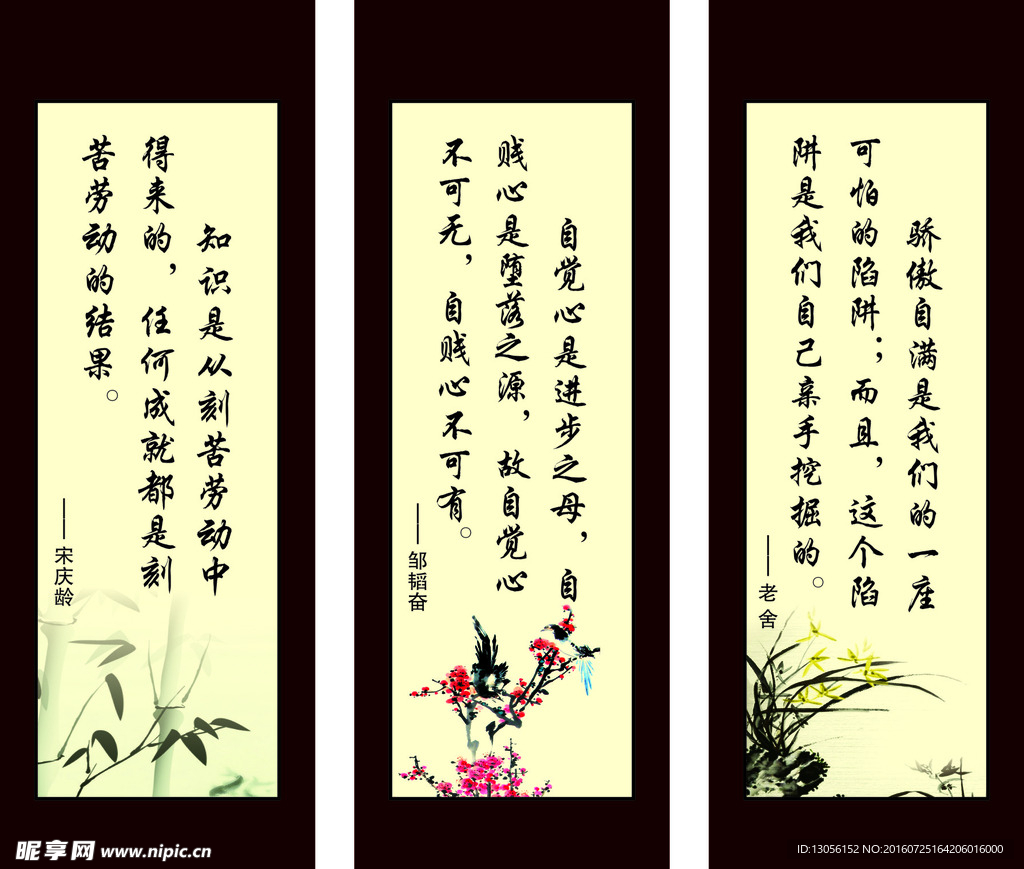 知识是从刻苦劳动中
得来的，任何成就都是刻
苦劳动的结果。
——宋庆龄
自觉心是进步之母，自
贱心是堕落之源，故自觉心
不可无，自贱心不可有。
——邹韬奋
骄傲自满是我们的一座
可怕的陷阱；而且，这个陷
阱是我们自己亲手挖掘的。
——老舍
昵享网 www.nipic.cn
ID:13056152 NO:20160725164206016000